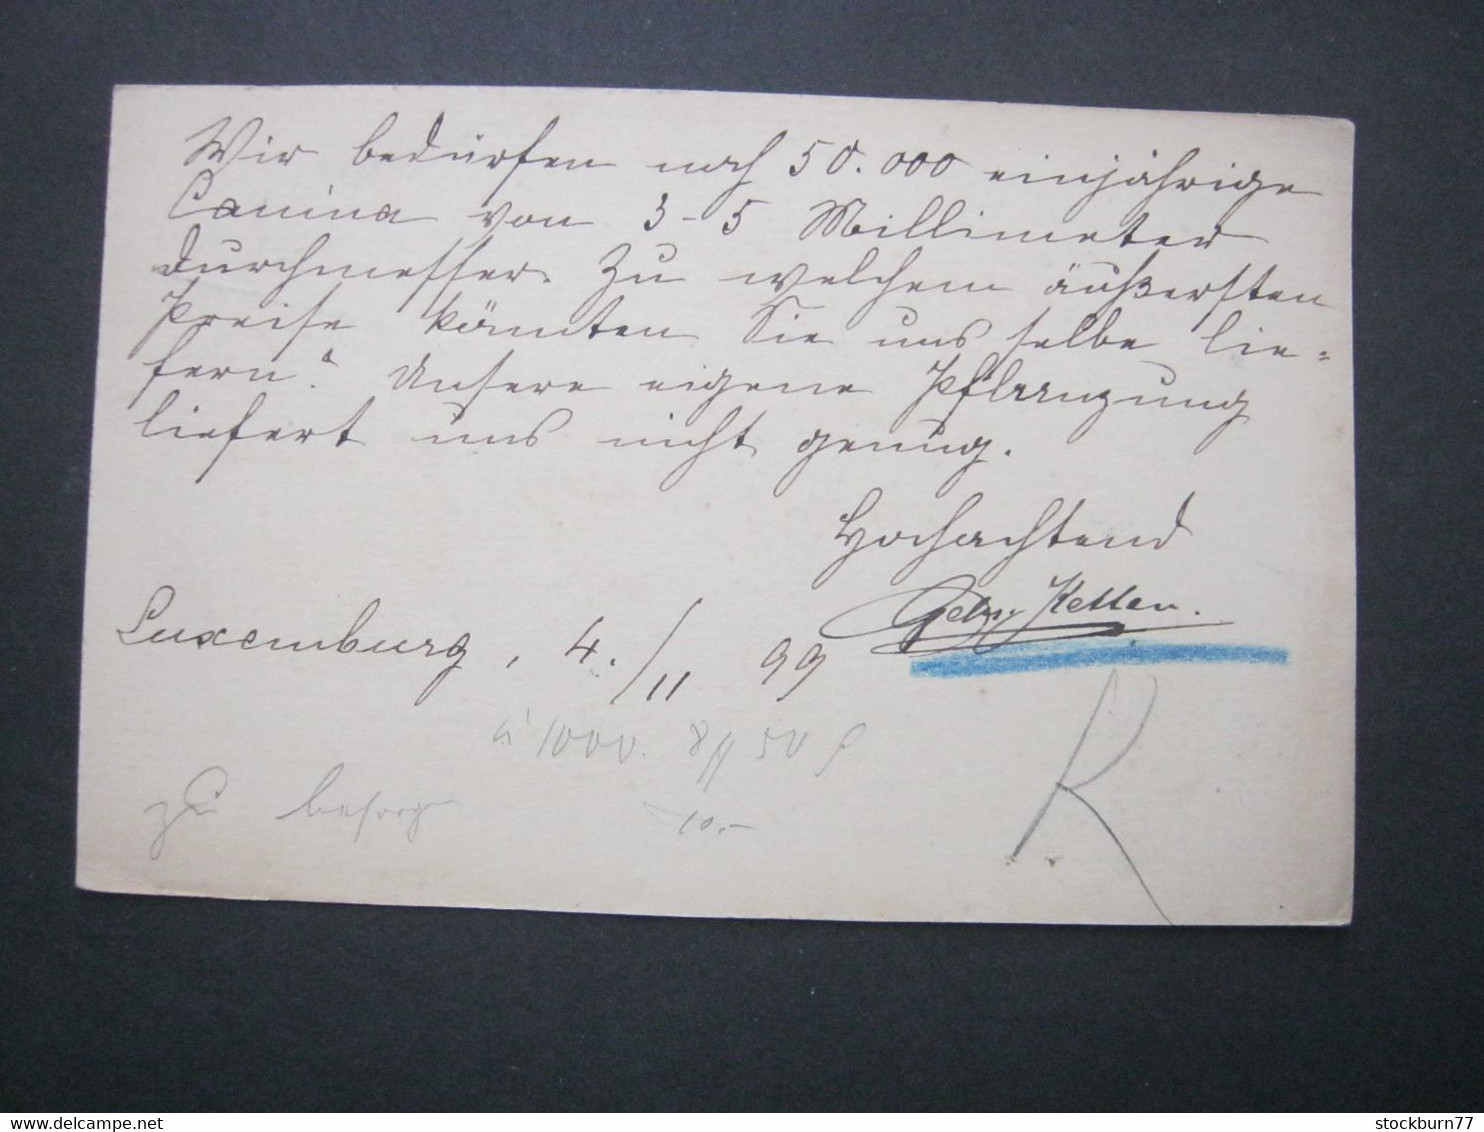 Wir bedürfen noch 50.000 einjährige
Canina von 3-5 Millimeter
Durchmesser. Zu welchem äußersten
Preise könnten Sie uns selbe lie=
fern? Unsere eigene Pflanzung
liefert uns nicht genug.
Hochachtend
Gebr. Ketten.
Luxemburg, 4./11 99
à 1000. 50
zu besorgen 10.-
R
stockburn77